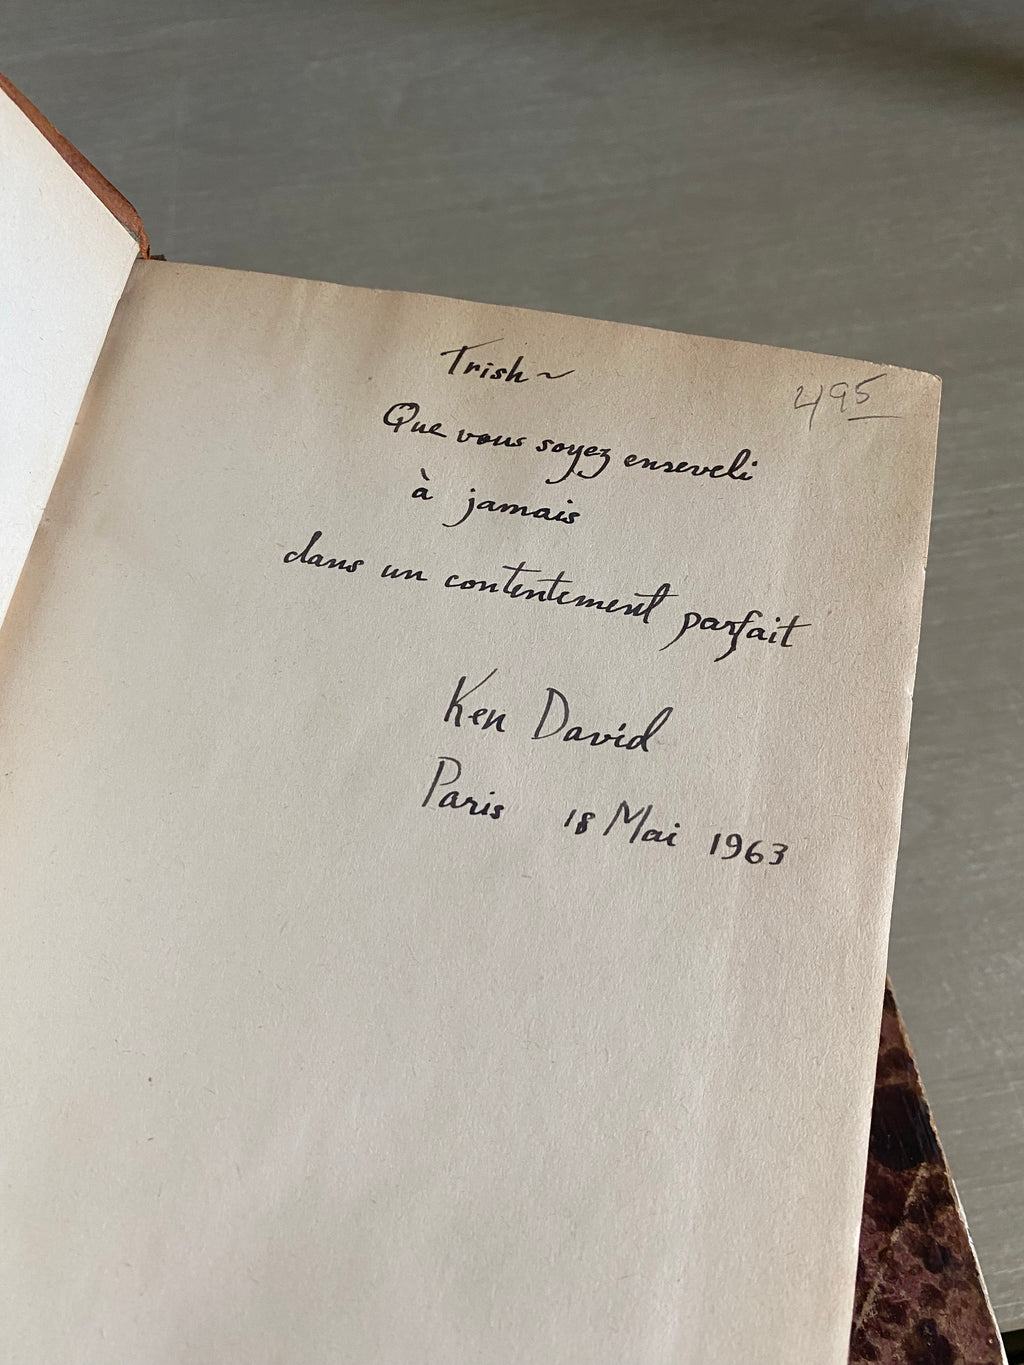 Trish ~
495
Que vous soyez enseveli
à jamais
dans un contentement parfait
Ken David
Paris 18 Mai 1963